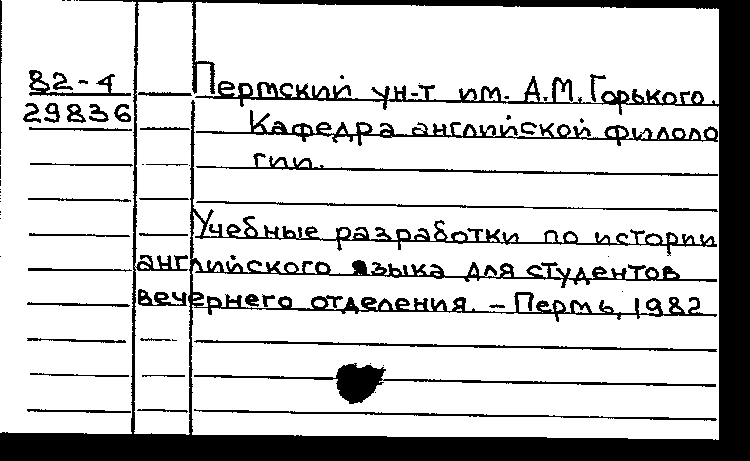 82-4 Пермский ун-т им. А.М. Горького.
29836
Кафедра английской филоло
гии.
Учебные разработки по истории
английского языка для студентов
вечернего отделения. - Пермь, 1982